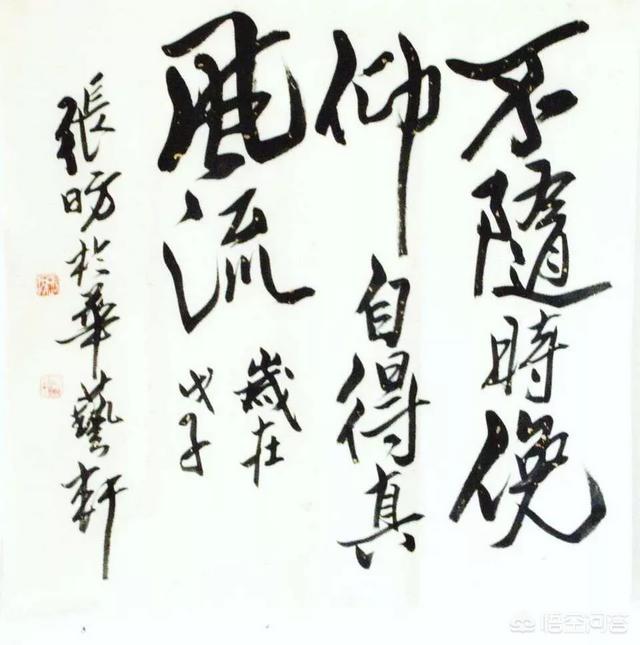 不隨時俛
仰自得真
風流
歲在
戊子
張昉於華藝軒
悟空问答